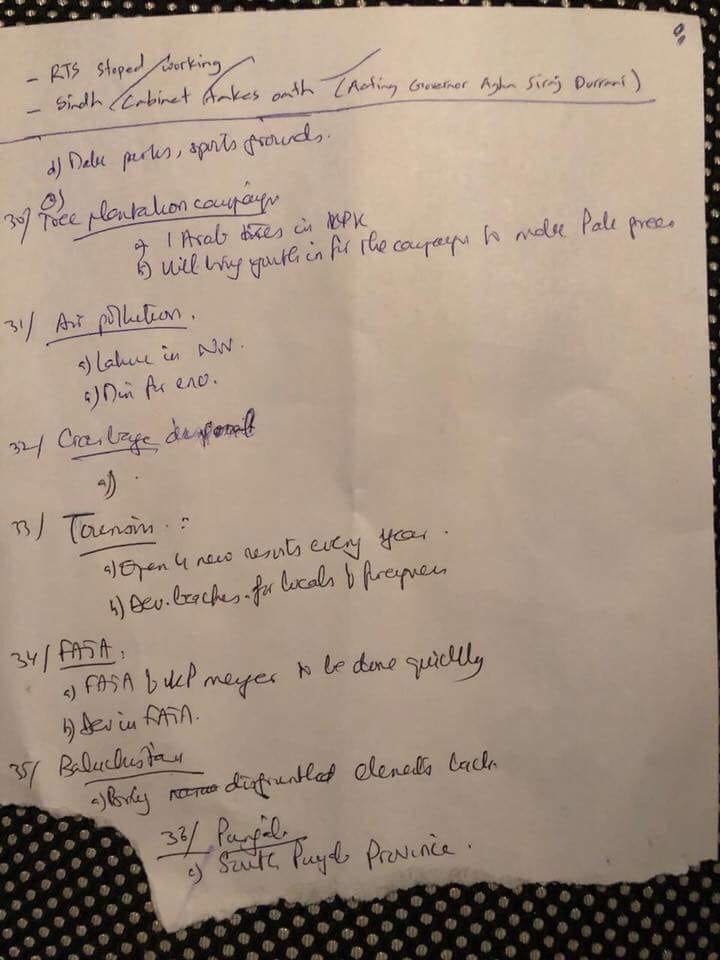 - RTS stoped working
- Sindh Cabinet takes oath (Acting Governor Agha Siraj Durrani)
d) Make parks, sports grounds.
30/ Tree plantation campaign
a) 1 Arab trees in KPK
b) Will bring youth in for the campaign to make Pak green
31/ Air pollution.
a) Lahore in
a) for env.
32/ Garbage disposal
a)
33/ Tourism :
a) Open 4 new resorts every year.
b) Dev. beaches for locals & foreigners
34/ FATA :
a) FATA & KP merger to be done quickly
b) Dev in FATA.
35/ Baluchistan
a) Bring disgruntled elements back
36/ Punjab
a) South Punjab Province.